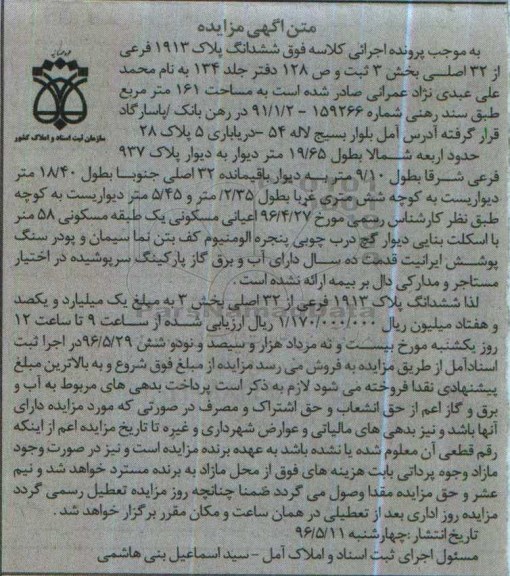 متن آگهی مزایده
به موجب پرونده اجرائی کلاسه فوق ششدانگ پلاک ۱۹۱۳ فرعی
از ۳۲ اصلی بخش ۳ ثبت و ص ۱۲۸ دفتر جلد ۱۳۴ به نام محمد
علی عبدی نژاد عمرانی صادر شده است به مساحت ۱۶۱ متر مربع
طبق سند رهنی شماره ۱۵۹۲۶۶ - ۹۱/۱/۲ در رهن بانک /پاسارگاد
قرار گرفته آدرس آمل بلوار بسیج لاله ۵۴ -دریاباری ۵ پلاک ۲۸
سازمان ثبت اسناد و املاک کشور
حدود اربعه شمالا بطول ۱۹/۶۵ متر دیوار به دیوار پلاک ۹۳۷
فرعی شرقا بطول ۹/۱۰ متر به دیوار باقیمانده ۳۲ اصلی جنوبا بطول ۱۸/۴۰ متر
دیواریست به کوچه شش متری غربا بطول ۲/۳۵/ متر و ۵/۴۵ متر دیواریست به کوچه
طبق نظر کارشناس رسمی مورخ ۹۶/۴/۲۷ اعیانی مسکونی یک طبقه مسکونی ۵۸ متر
با اسکلت بنایی دیوار گچ درب چوبی پنجره الومنیوم کف بتن نما سیمان و پودر سنگ
پوشش ایرانیت قدمت ده سال دارای آب و برق گاز پارکینگ سرپوشیده در اختیار
مستاجر و مدارکی دال بر بیمه ارائه نشده است .
لذا ششدانگ پلاک ۱۹۱۳ فرعی از ۳۲ اصلی بخش ۳ به مبلغ یک میلیارد و یکصد
و هفتاد میلیون ریال ۱/۱۷۰/۰۰۰/۰۰۰ ریال ارزیابی شده از ساعت ۹ تا ساعت ۱۲
روز یکشنبه مورخ بیست و نه مرداد هزار و سیصد و نودو شش ۹۶/۵/۲۹در اجرا ثبت
اسنادآمل از طریق مزایده به فروش می رسد مزایده از مبلغ فوق شروع و به بالاترین مبلغ
پیشنهادی نقدا فروخته می شود لازم به ذکر است پرداخت بدهی های مربوط به آب و
برق و گاز اعم از حق انشعاب و حق اشتراک و مصرف در صورتی که مورد مزایده دارای
آنها باشد و نیز بدهی های مالیاتی و عوارض شهرداری و غیره تا تاریخ مزایده اعم از اینکه
رقم قطعی آن معلوم شده یا نشده باشد به عهده برنده مزایده است و نیز در صورت وجود
مازاد وجوه پرداتی بابت هزینه های فوق از محل مازاد به برنده مسترد خواهد شد و نیم
عشر و حق مزایده مقدا وصول می گردد ضمنا چنانچه روز مزایده تعطیل رسمی گردد
مزایده روز اداری بعد از تعطیلی در همان ساعت و مکان مقرر برگزار خواهد شد .
تاریخ انتشار :چهارشنبه ۹۶/۵/۱۱
مسئول اجرای ثبت اسناد و املاک آمل - سید اسماعیل بنی هاشمی